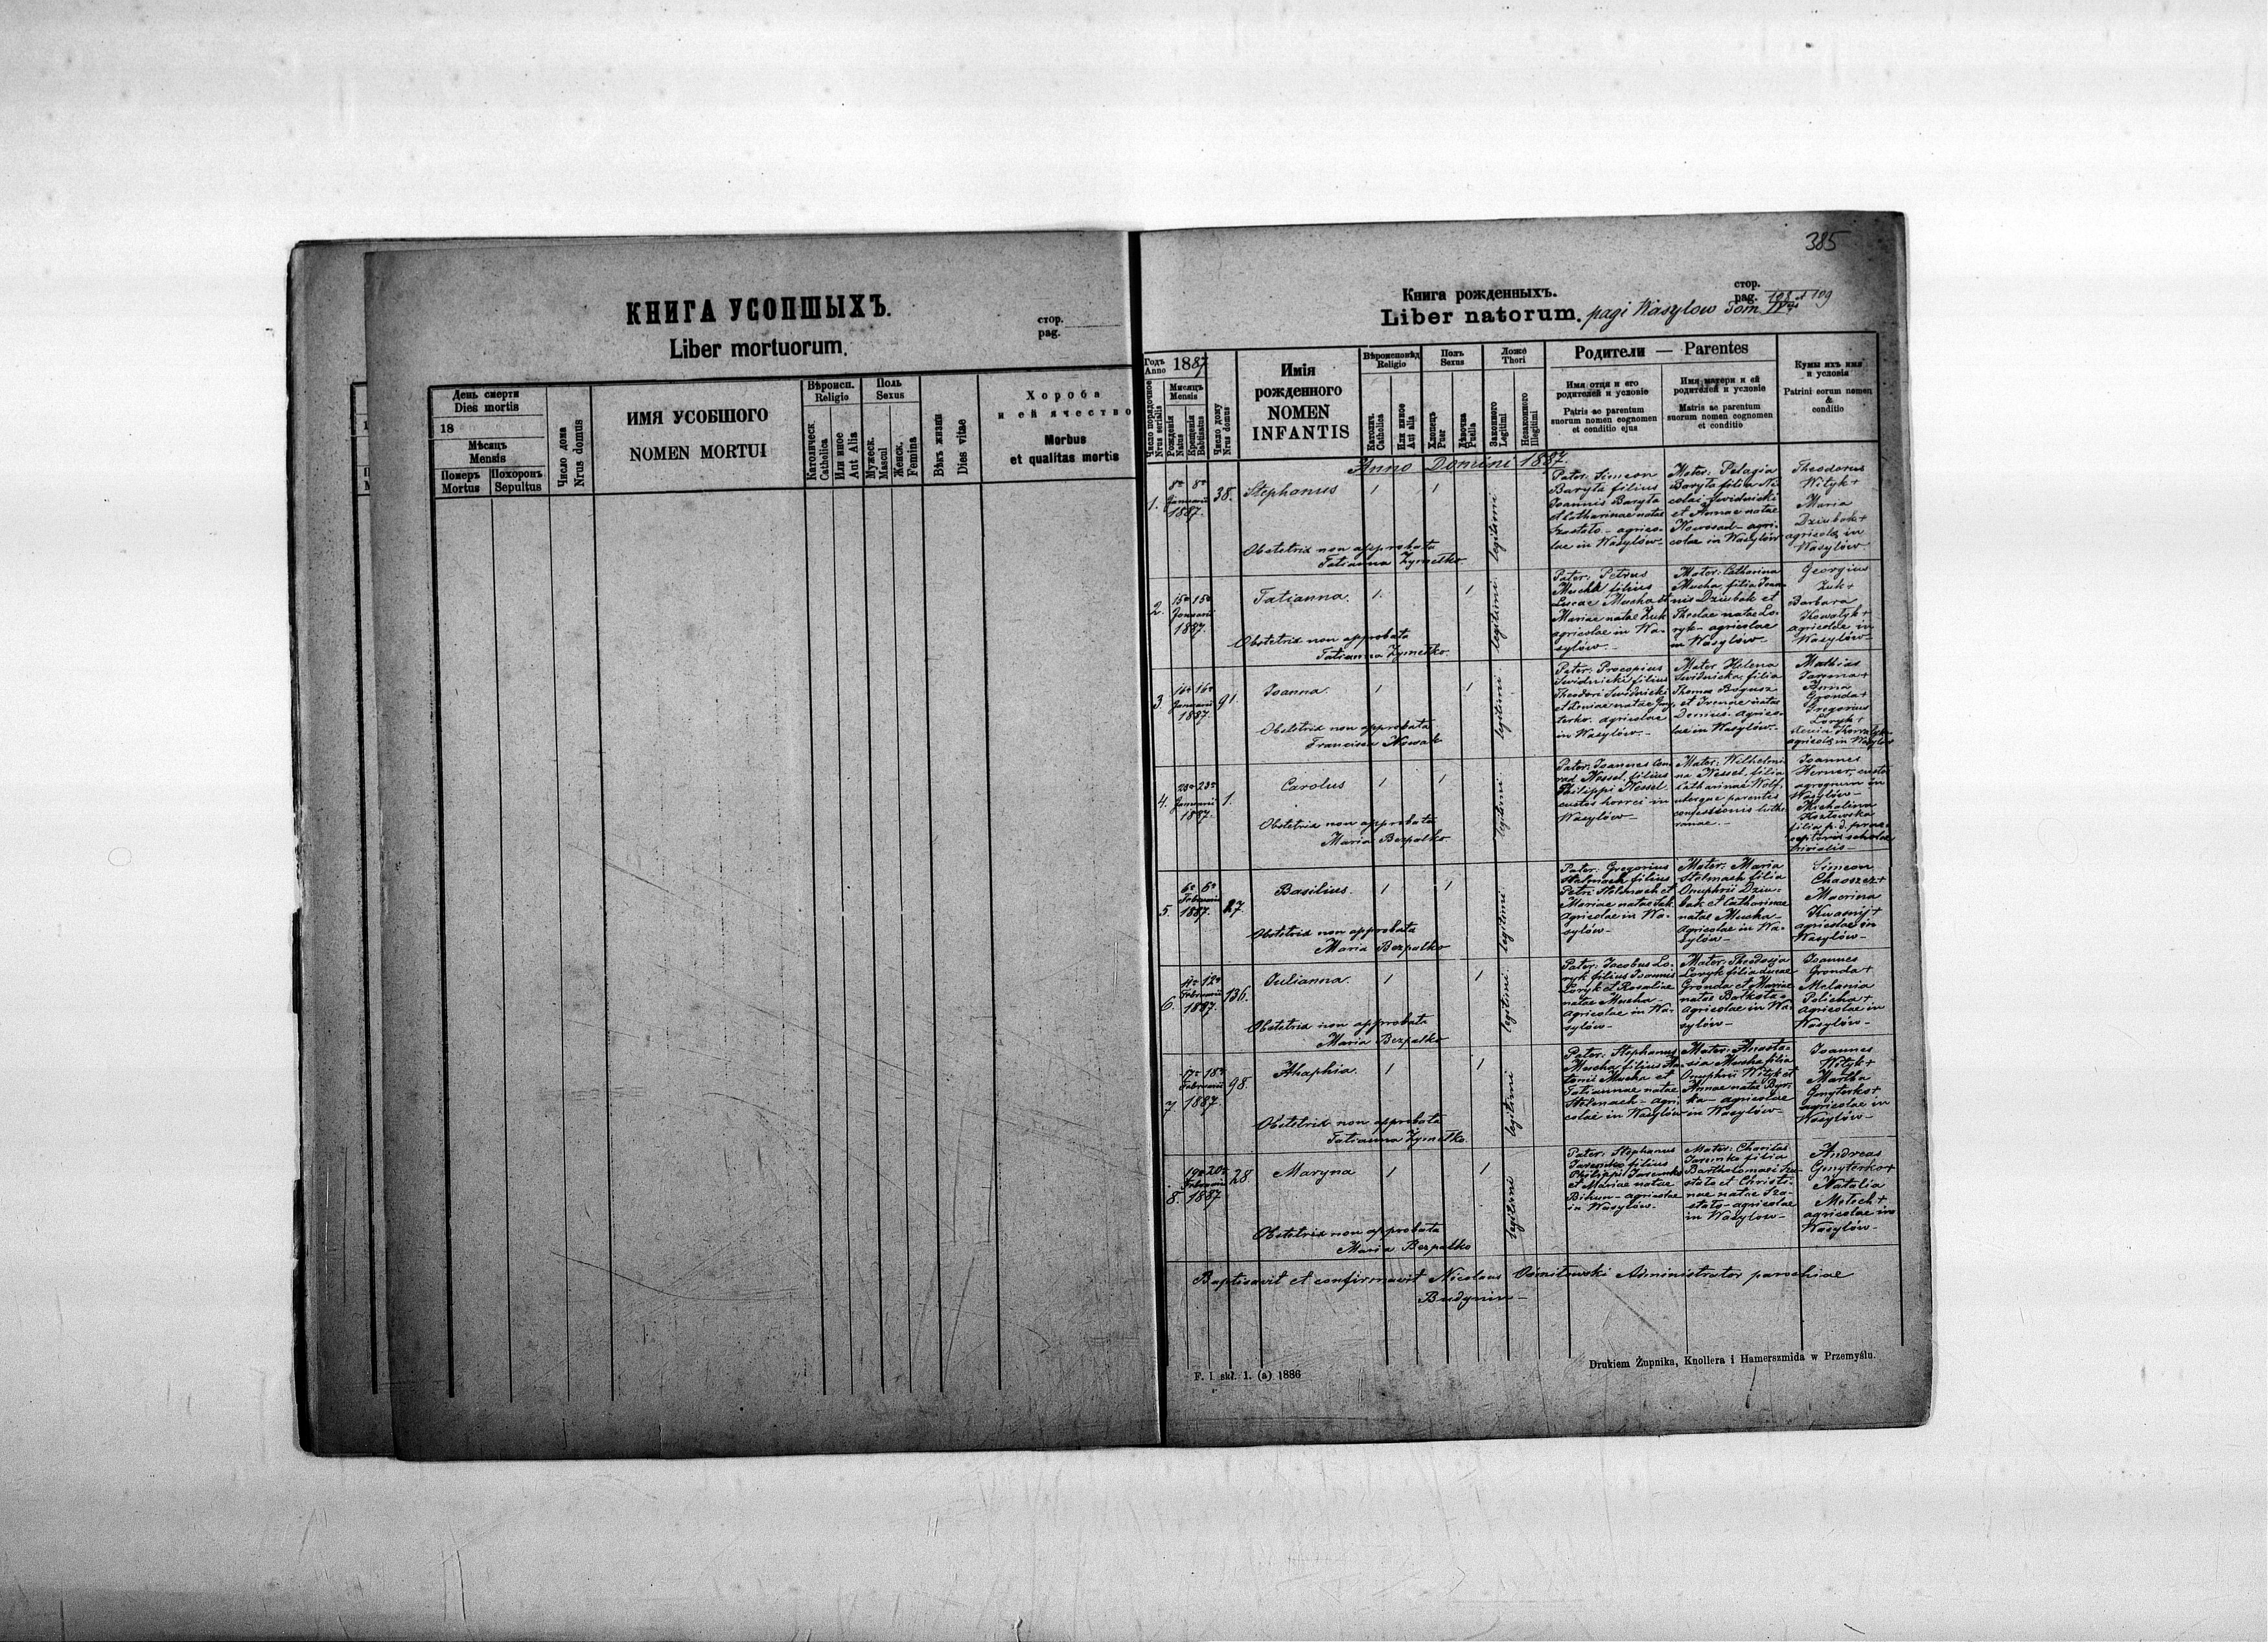 КНИГА УСОПШЫХЪ.
Liber mortuorum.
стор.
pag.
День смерти
Dies mortis
18
Мѣсяць
Mensis
Померъ
Mortus
Похоронъ
Sepultus
Число дома
Nrus domus
ИМЯ УСОБШОГО
NOMEN MORTUI
Вѣроисп.
Religio
Католическ.
Catholica
Или иное
Aut Alia
Поль
Sexus
Мужеск.
Mascul
Женск.
Femina
Вѣкъ жизни
Dies vitae
Хороба
и ей ячество
Morbus
et qualitas mortis
385
Книга рожденныхъ.
Liber natorum. pagi Wasylow Tom
стор.
pag. 109
Годъ
Anno 1887
Число порядочное
Nrus serialis
Мисяцъ
Mensis
Рожденія
Natus
Крещенія
Babtisatus
Число дому
Nrus domus
Имія
рожденного
NOMEN
INFANTIS
Вѣроисповѣд
Religio
Католич.
Catholica
Или иное
Aut alia
Полъ
Sexus
Хлопецъ
Puer
Дѣвочка
Puella
Ложе
Thori
Законного
Legitimi
Незаконного
Illegitimi
Родители — Parentes
Имя отца и его
родителей и условіе
Patris ac parentum
suorum nomen cognomen
et conditio ejus
Имя матери и ей
родителей и условіе
Matris ac parentum
suorum nomen cognomen
et conditio
Кумы ихъ имя
и условія
Patrini eorum nomen
&
conditio
Anno Domini 1887.
1. 8º 8º Januarii 1887. 38. Stephanus 1 1 legitimi
Obstetrix non approbata
Tatianna Zymełko
Pater: Simeon
Baryta filius
Joannis Baryta
et Catharinae natae
Szostało - agrico-
lae in Wasylów-
Mater: Pelagia
Baryta filia Ni
colai Swidnicki
et Annae natae
Nowosad - agri-
colae in Wasylów
Theodorus
Wityk +
Maria
Dziubak +
agricolae in
Wasylów
2. 15º 15º Januarii 1887. Tatianna. 1. 1 legitimi
Obstetrix non approbata
Tatianna Zymełko
Pater: Petrus
Mucha filius
Lucae Mucha et
Mariae natae Zuk
agricolae in Wa-
sylów -
Mater: Catharina
Mucha, filia Joan-
nis Dziubak et
Theclae natae Lo-
ryk - agricolae
in Wasylów
Georgius
Zuk +
Barbara
Kowatyk +
agricolae in
Wasylów
3. 16º 16º Januarii 1887. 91. Joanna. 1 1 legitimi
Obstetrix non approbata
Francisca Nowak
Pater: Procopius
Swidnicki filius
Theodori Swidnicki
et Xeniae natae Gmy-
terko. agricolae
in Wasylów -
Mater Helena
Swidnicka, filia
Thomae Bogusz
et Irenae natae
Denius. agrico-
lae in Wasylów -
Mathias
Jarema +
Anna
Gronda +
Gregorius
Loryk +
agricolae in Wasylów
4. 23º 23º Januarii 1887. 1. Carolus 1 1 legitimi
Obstetrix non approbata
Maria Bezpalko
Pater: Joannes Con-
rad Wessel, filius
Philippi Wessel
custos horrei in
Wasylów -
Mater: Wilhelmi-
na Wessel, filia
Catharinae Wolf,
uterque parentes
confessionis luthe-
ranae. -
Joannes
Werner, custos
agrorum in
Wasylów -
Michalina
Kozłowska
filia p. d. prae-
ceptoris scholae
trivialis -
5. 6º 6º Februarii 1887. 27. Basilius. 1 1 legitimi
Obstetrix non approbata
Maria Bezpalko
Pater: Gregorius
Stelmach filius
Petri Stelmach et
Mariae natae Zuk
agricolae in Wa-
sylów -
Mater: Maria
Stelmach filia
Onuphrii Dziu-
bak et Catharinae
natae Mucha -
agricolae in Wa-
sylów -
Simeon
Chaoszcz +
Macrina
Kwasnij +
agricolae in
Wasylów -
6. 11º 12º Februarii 1887. 136. Julianna. 1 1 legitimi
Obstetrix non approbata
Maria Bezpalko
Pater: Jacobus Lo-
ryk filius Joannis
Loryk et Rosaliae
natae Mucha -
agricolae in Wa-
sylów -
Mater: Theodosia
Loryk filia Lucae
Gronda et Mariae
natae Batkota -
agricolae in Wa-
sylów -
Joannes
Gronda +
Melania
Policha +
agricolae in
Wasylów -
7. 17º 18º Februarii 1887. 98. Ahaphia. 1 1 legitimi
Obstetrix non approbata
Tatianna Zymełko.
Pater: Stephanus
Mucha, filius An-
tonii Mucha et
Tatiannae natae
Stelmach - agri-
colae in Wasylów
Mater: Anasta-
sia Mucha filia
Onuphrii Wityk et
Annae natae Byr-
ka - agricolae
in Wasylów -
Joannes
Wityk +
Martha
Gmyterko +
agricolae in
Wasylów -
8. 19º 20º Februarii 1887 28. Maryna 1 1 legitimi
Obstetrix non approbata
Maria Bezpalko
Pater: Stephanus
Jaremko filius
Philippi Jaremko
et Mariae natae
Bihun - agricolae
in Wasylów.
Mater: Charitas
Jaremko filia
Bartholomaei Szo-
stalo et Christi-
nae natae Szo-
stało - agricolae
in Wasylow -
Andreas
Gmyterko +
Natalia
Motoch +
agricolae in
Wasylów -
Baptisavit et confirmavit Nicolaus Administrator parochiae
Budynin -
F. I skł. 1. (a) 1886
Drukiem Żupnika, Knollera i Hamerszmida w Przemyślu.